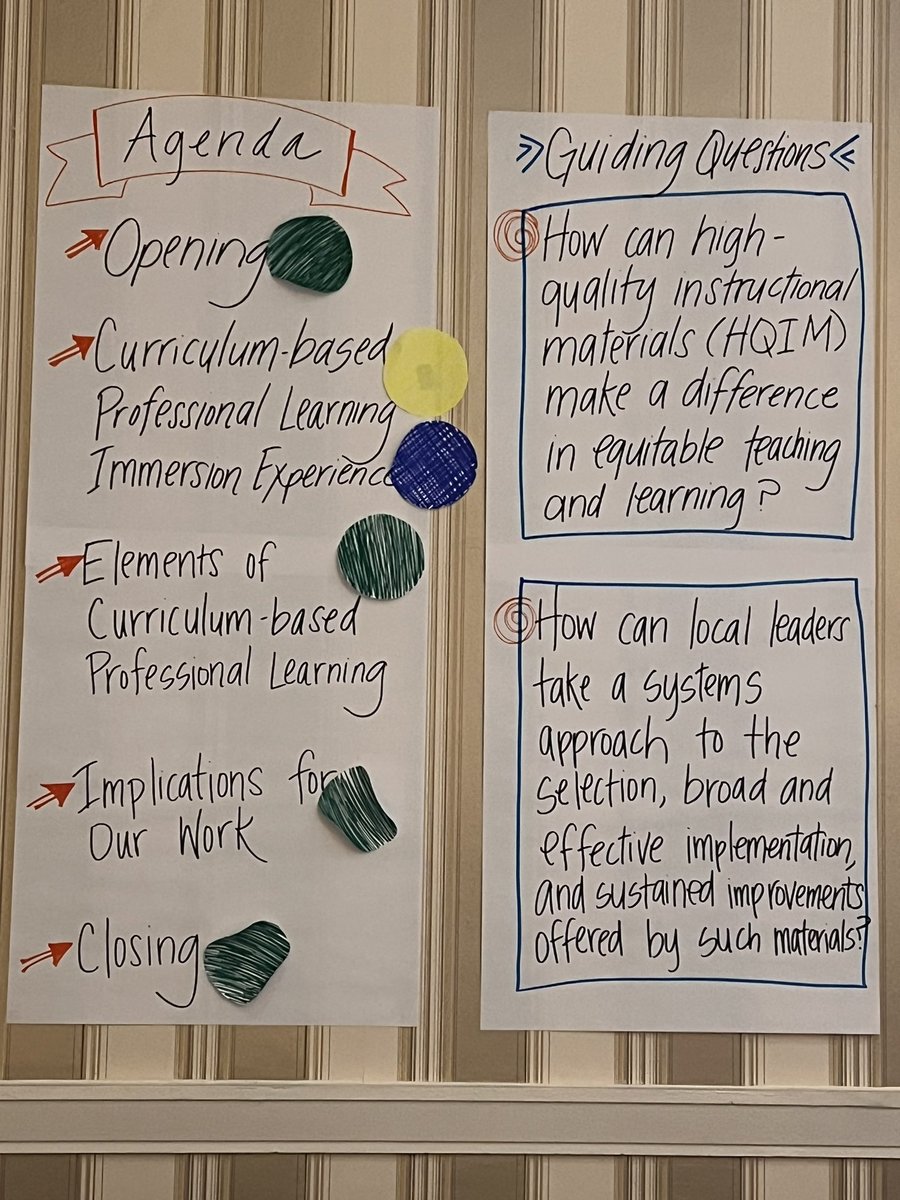 Agenda
Opening
Curriculum-based
Professional Learning
Immersion Experience
Elements of
Curriculum-based
Professional Learning
Implications for
Our Work
Closing
Guiding Questions
How can high-
quality instructional
materials (HQIM)
make a difference
in equitable teaching
and learning?
How can local leaders
take a systems
approach to the
selection, broad and
effective implementation,
and sustained improvements
offered by such materials?